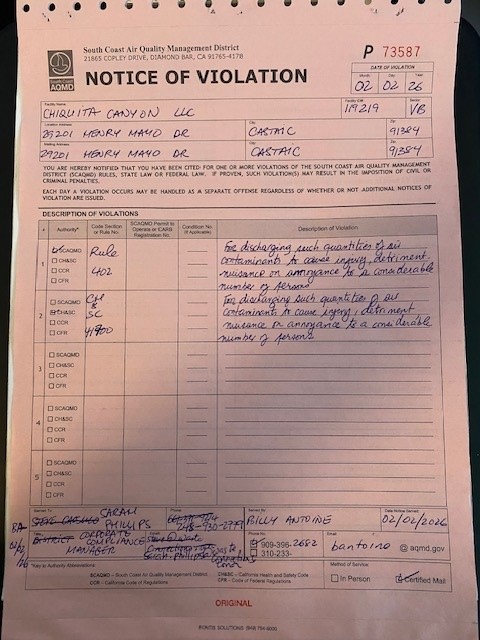 South Coast Air Quality Management District
21865 COPLEY DRIVE, DIAMOND BAR, CA 91765-4178
P 73587
South Coast
AQMD
NOTICE OF VIOLATION
DATE OF VIOLATION
Month Day Year
02 02 26
Facility Name
Facility ID#
Sector
CHIQUITA CANYON LLC
119219
VB
Location Address
City
Zip
29201 HENRY MAYO DR
CASTAIC
91384
Mailing Address
City
Zip
29201 HENRY MAYO DR
CASTAIC
91384
YOU ARE HEREBY NOTIFIED THAT YOU HAVE BEEN CITED FOR ONE OR MORE VIOLATIONS OF THE SOUTH COAST AIR QUALITY MANAGEMENT
DISTRICT (SCAQMD) RULES, STATE LAW OR FEDERAL LAW. IF PROVEN, SUCH VIOLATION(S) MAY RESULT IN THE IMPOSITION OF CIVIL OR
CRIMINAL PENALTIES.
EACH DAY A VIOLATION OCCURS MAY BE HANDLED AS A SEPARATE OFFENSE REGARDLESS OF WHETHER OR NOT ADDITIONAL NOTICES OF
VIOLATION ARE ISSUED.
DESCRIPTION OF VIOLATIONS
# Authority* Code Section or Rule No. SCAQMD Permit to Operate or CARB Registration No. Condition No. (If Applicable) Description of Violation
1
SCAQMD
CH&SC
CCR
CFR
Rule
402
For discharging such quantities of air
contaminants to cause injury, detriment
nuisance or annoyance to a considerable
number of persons
2
SCAQMD
CH&SC
CCR
CFR
CH
&
SC
41700
For discharging such quantities of air
contaminants to cause injury, detriment
nuisance or annoyance to a considerable
number of persons
3
SCAQMD
CH&SC
CCR
CFR
4
SCAQMD
CH&SC
CCR
CFR
5
SCAQMD
CH&SC
CCR
CFR
Served To
SARAH
PHILLIPS
Phone
248-930-2779
Served By
BILLY ANTOINE
Date Notice Served
02/02/2026
BA
Title
CORPORATE
COMPLIANCE
MANAGER
Email
Phone No.
909-396-2682
310-233-
Email
bantoine @ aqmd.gov
*Key to Authority Abbreviations:
SCAQMD – South Coast Air Quality Management District
CCR – California Code of Regulations
CH&SC – California Health and Safety Code
CFR – Code of Federal Regulations
Method of Service:
In Person
Certified Mail
ORIGINAL